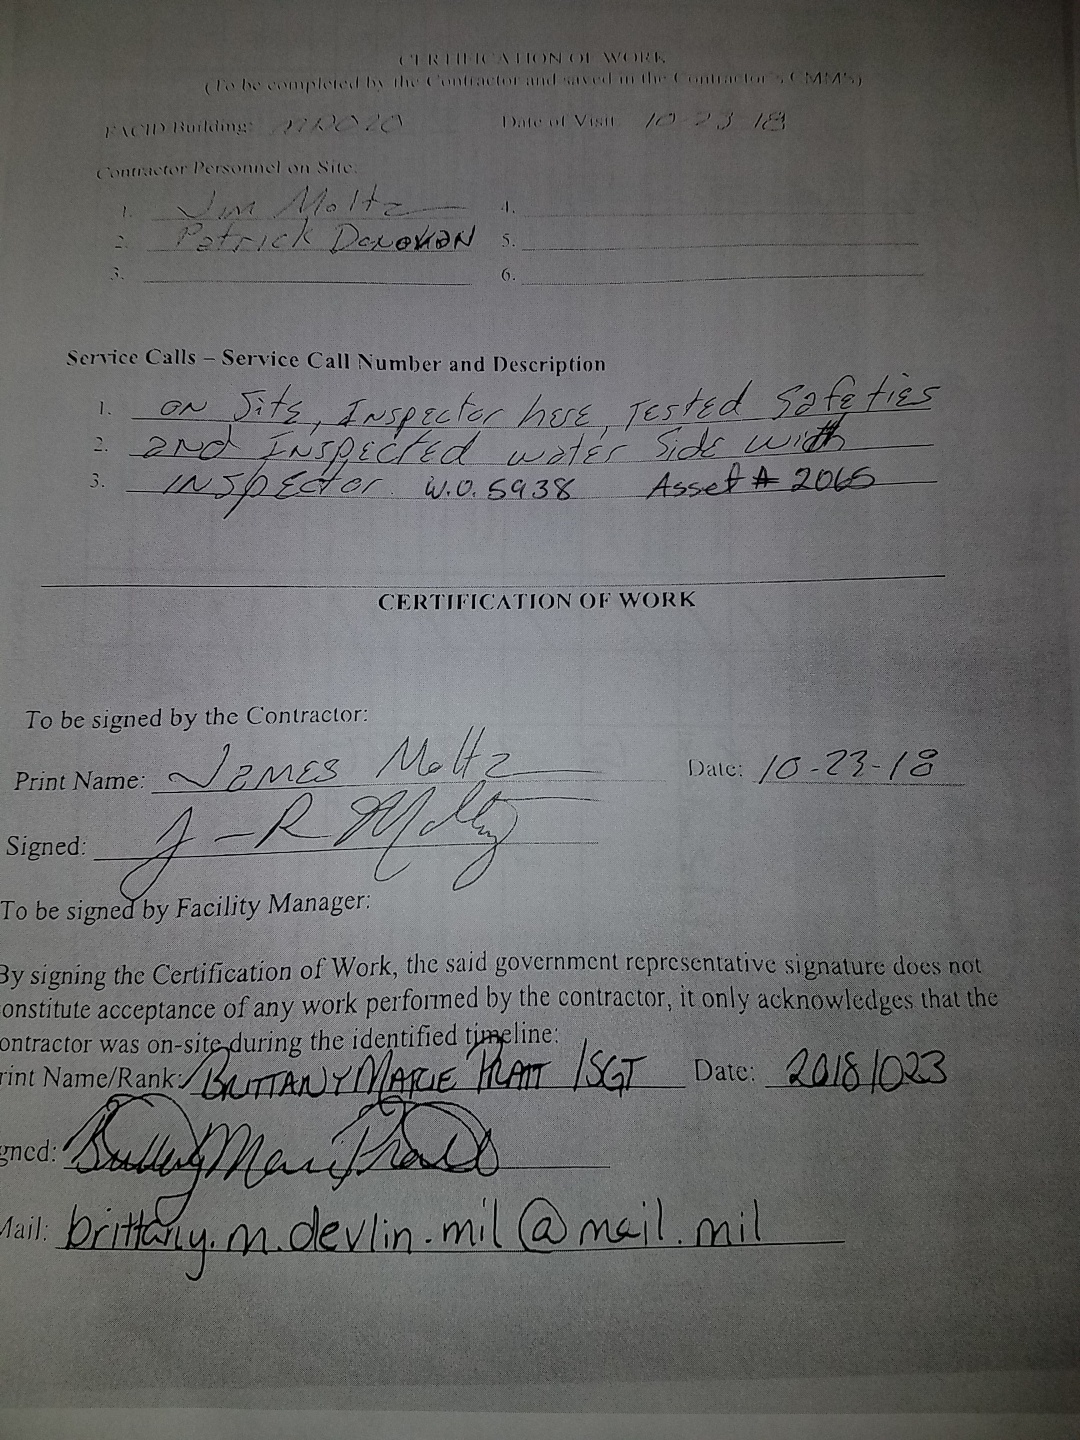 CERTIFICATION OF WORK
(To be completed by the Contractor and saved in the Contractor's CMMS)
FACID Building: Date of Visit 10-23-18
Contractor Personnel on Site:
1. Jim Moltz 4.
2. Patrick Donovan 5.
3. 6.
Service Calls – Service Call Number and Description
1. ON Site, INspector here, Tested Safeties
2. and INspected water Side with
3. INspector. W.O. 5938 Asset # 2065
CERTIFICATION OF WORK
To be signed by the Contractor:
Print Name: James Moltz Date: 10-23-18
Signed: J-R Moltz
To be signed by Facility Manager:
By signing the Certification of Work, the said government representative signature does not
onstitute acceptance of any work performed by the contractor, it only acknowledges that the
ontractor was on-site during the identified timeline:
rint Name/Rank: BRITTANY MARIE PRATT /SGT Date: 20181023
gned: Brittany Marie Pratt
Mail: brittany.m.devlin.mil@mail.mil